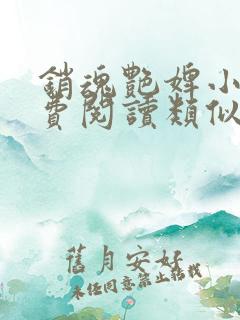 銷魂艷婢小
費閱讀類似
舊月安好
未經同意禁止轉載